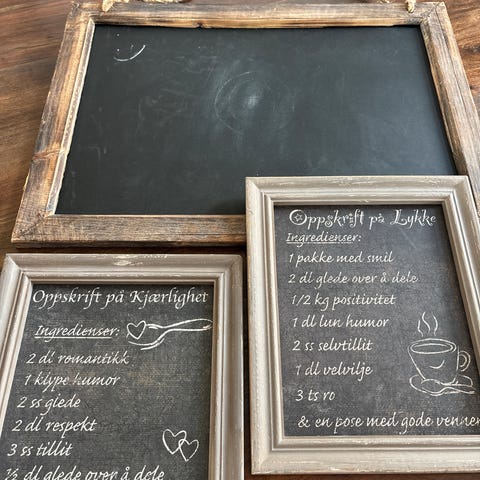 Oppskrift på Kjærlighet
Ingredienser:
2 dl romantikk
1 klype humor
2 ss glede
2 dl respekt
3 ss tillit
½ dl glede over å dele
Oppskrift på Lykke
Ingredienser:
1 pakke med smil
2 dl glede over å dele
1/2 kg positivitet
1 dl lun humor
2 ss selvtillit
1 dl velvilje
3 ts ro
& en pose med gode venner